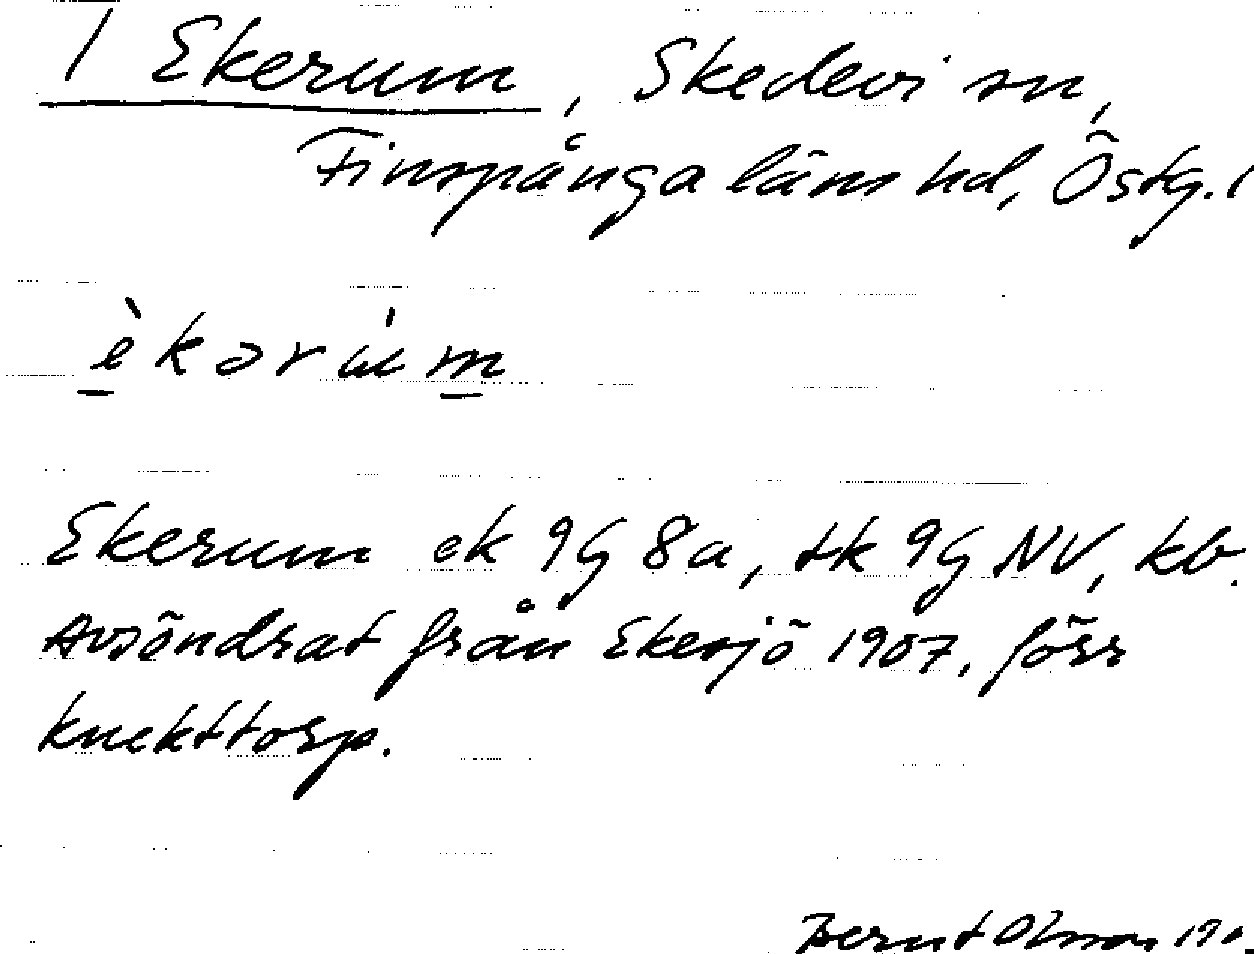 1 Ekerum, Skedevi sn,
Finspånga läns hd, Östg. l
èkərúm
Ekerum ek 9G 8a, tk 9G NV, kb.
Avsöndrat från Ekesjö 1907, förr
knekttorp.
Bernt Olsson 19